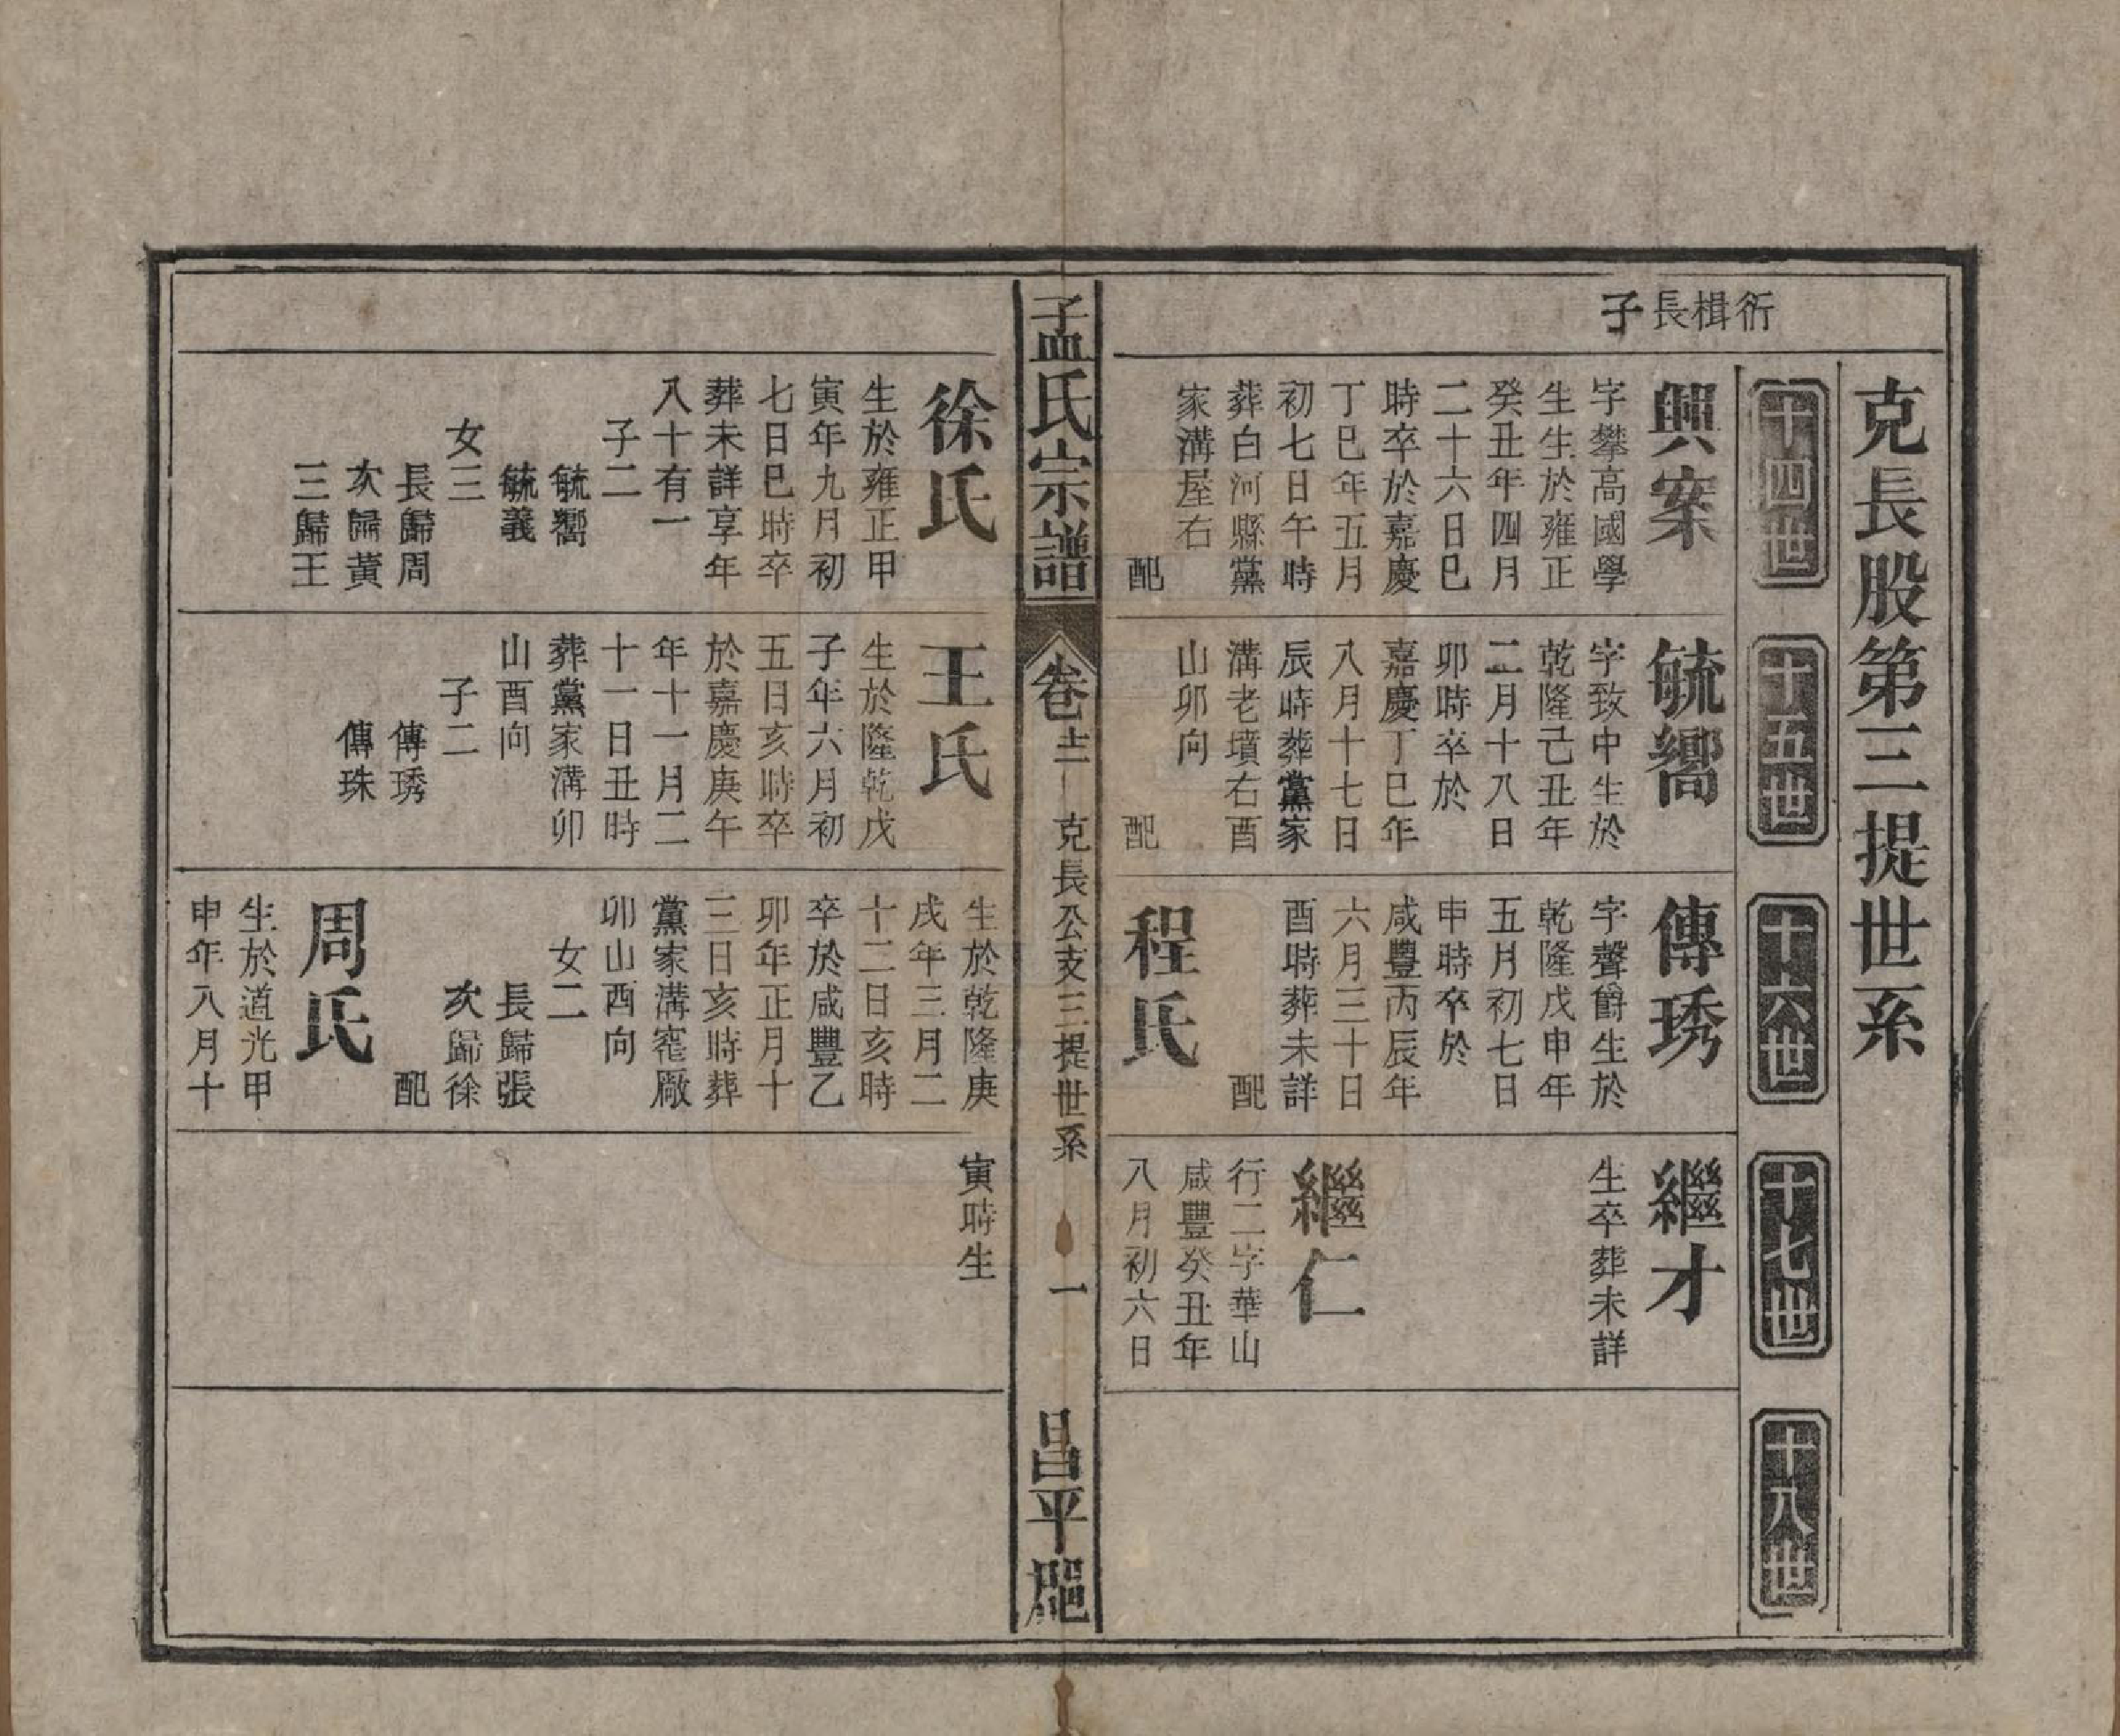 克長股第三提世系
十四世
十五世
十六世
十七世
十八世
衍楫長子
興案
字攀高國學
生生於雍正
癸丑年四月
二十六日巳
時卒於嘉慶
丁巳年五月
初七日午時
葬白河縣黨
家溝屋右
配
毓嚮
字致中生於
乾隆己丑年
二月十八日
卯時卒於
嘉慶丁巳年
八月十七日
辰時葬黨家
溝老墳右酉
山卯向
配
傳琇
字聲爵生於
乾隆戊申年
五月初七日
申時卒於
咸豐丙辰年
六月三十日
酉時葬未詳
配
程氏
繼才
生卒葬未詳
繼仁
行二字華山
咸豐癸丑年
八月初六日
孟氏宗譜
卷十二
克長公支三提世系
一
昌平郡
徐氏
生於雍正甲
寅年九月初
七日巳時卒
葬未詳享年
八十有一
子二
毓嚮
毓義
女三
長歸周
次歸黃
三歸王
王氏
生於隆乾戊
子年六月初
五日亥時卒
於嘉慶庚午
年十一月二
十一日丑時
葬黨家溝卯
山酉向
子二
傳琇
傳珠
生於乾隆庚
戌年三月二
十二日亥時
卒於咸豐乙
卯年正月十
三日亥時葬
黨家溝窰厰
卯山酉向
女二
長歸張
次歸徐
配
周氏
生於道光甲
申年八月十
寅時生